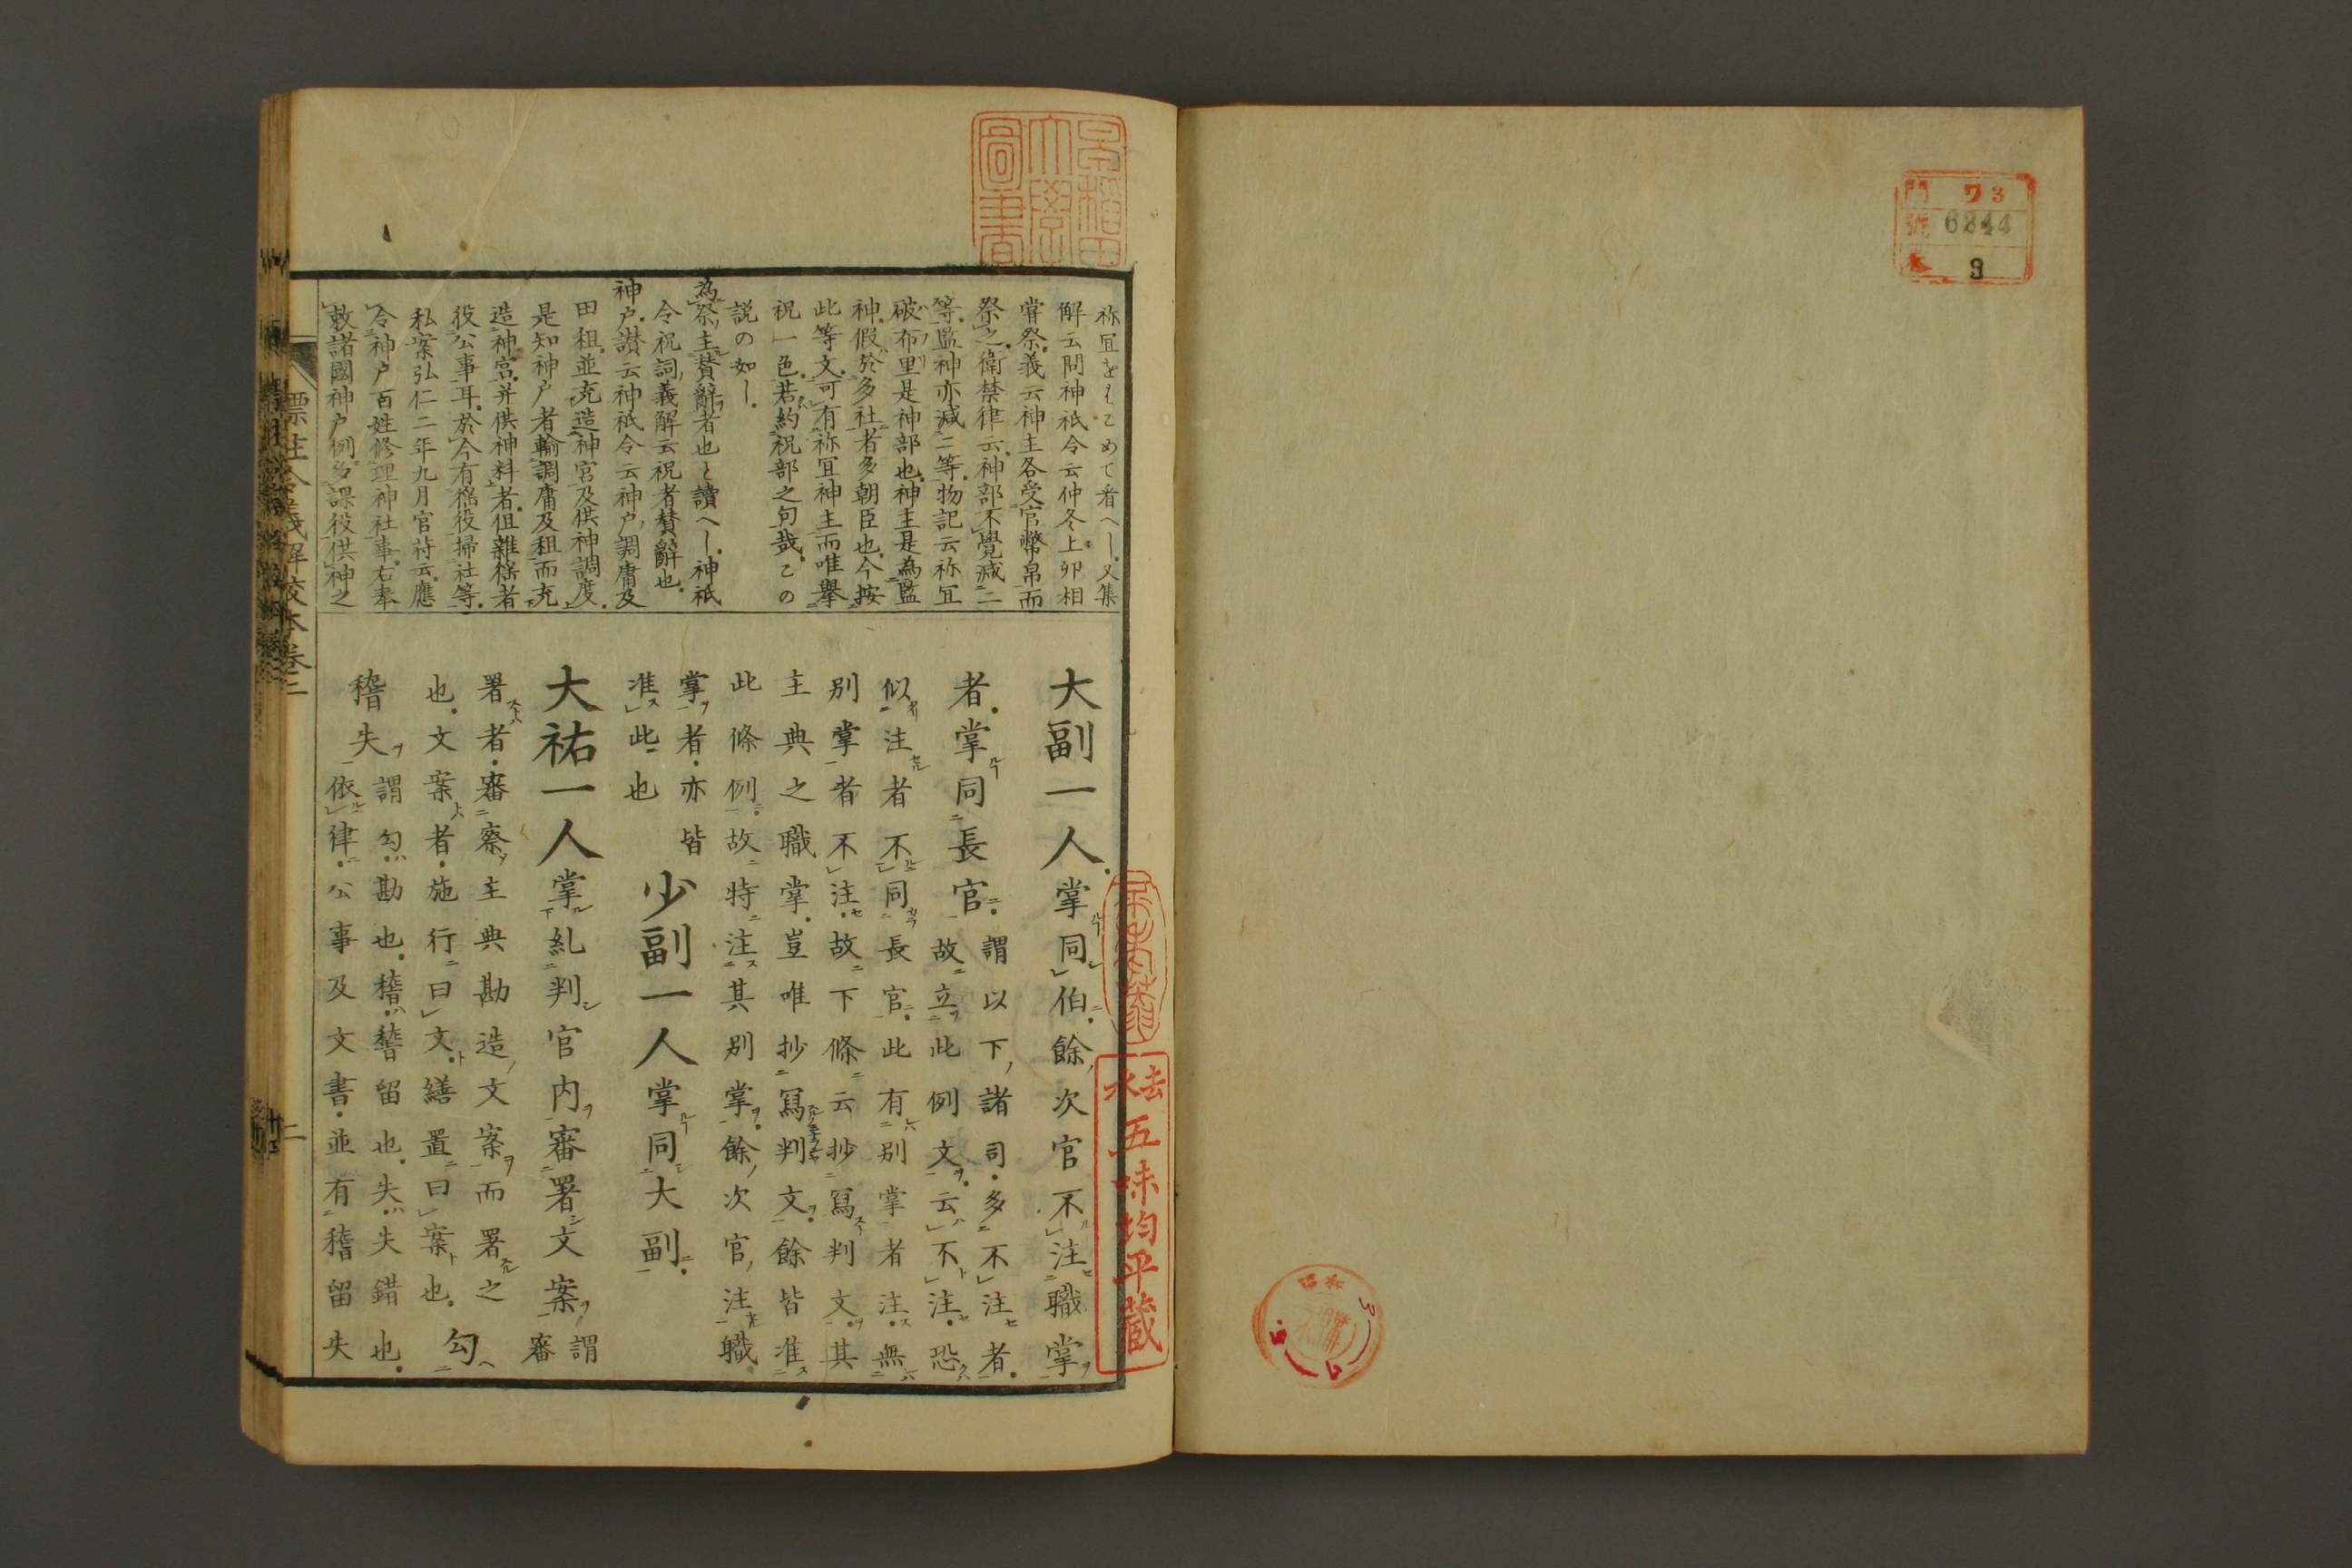 門 ワ3
號 6844
巻 3
早稲田大學圖書
祢冝をもこめて看へし又集
解云問神祇令云仲冬上卯相
甞祭義云神主各受官幣帛而
祭之衛禁律云神部不覺減二
等監神亦減二等物記云祢冝
破布里是神部也神主是為監
神假於多社者多朝臣也今按
此等文可有祢冝神主而唯擧
祝一色若約祝部之句哉この
説の如し
為祭主賛辭者也と讀へし神祇
令祝詞義解云祝者賛辭也
神戸讃云神祇令云神戸調庸及
田租並充造神宮及供神調度
是知神戸者輸調庸及租而充
造神宮并供神料者但雜徭者
役公事耳於今有徭役掃社等
私案弘仁二年九月官苻云應
令神戸百姓修理神社事右奉
敕諸國神戸例多課役供神之
大副一人掌同伯餘次官不注職掌
者掌同長官謂以下諸司多不注者
故立此例文云不注恐
似注者不同長官此有別掌者注無
別掌者不注故下條云抄寫判文其
主典之職掌豈唯抄寫判文餘皆准
此條例故特注其別掌餘次官注職
掌者亦皆
准此也
少副一人掌同大副
大祐一人掌糺判官内審署文案謂
審
署者審察主典勘造文案而署之
也文案者施行曰文繕置曰案也
勾
稽失謂勾勘也稽稽留也失失錯也
依律公事及文書並有稽留失
標註令義解校本巻二
二
去水
五味均平蔵